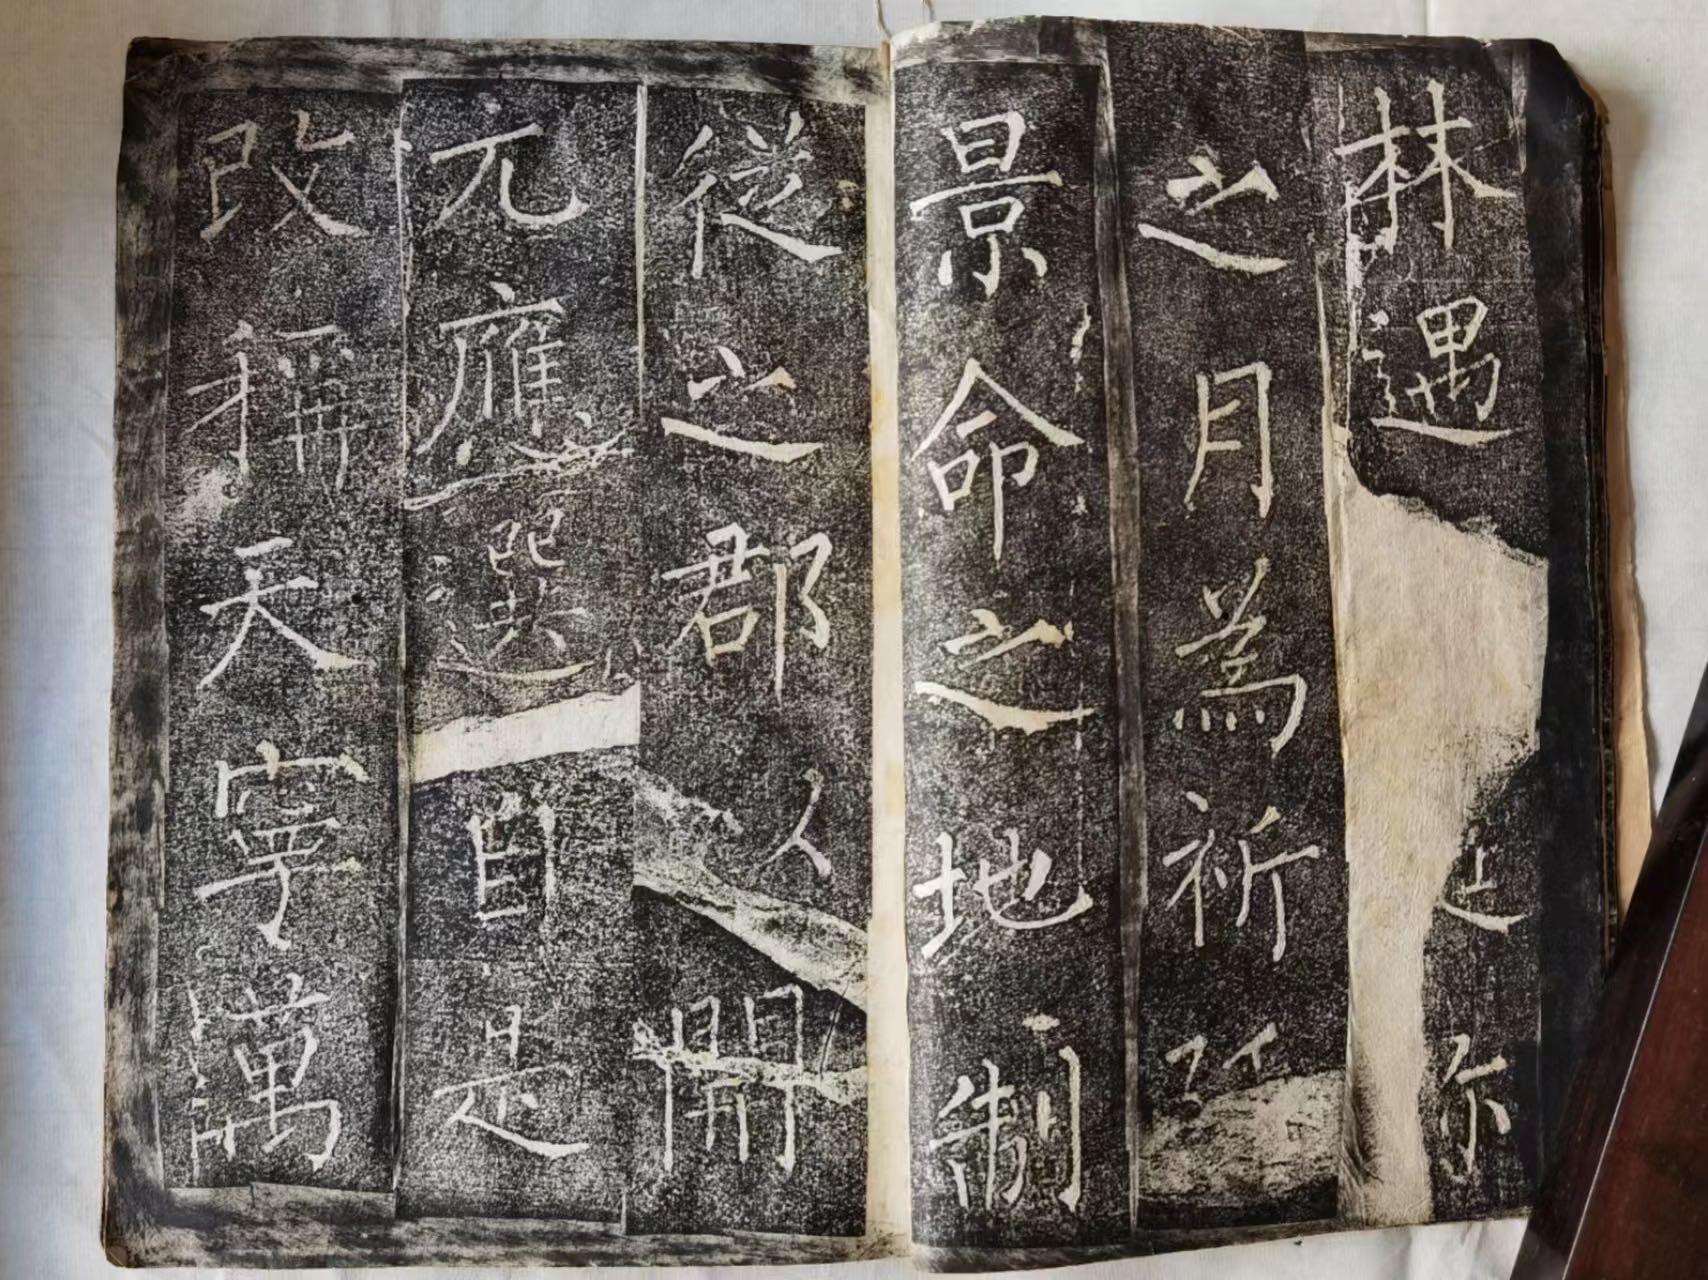 林遇
之月為祈
景命之地制
從之郡以開
元應選自是
改稱天寧萬